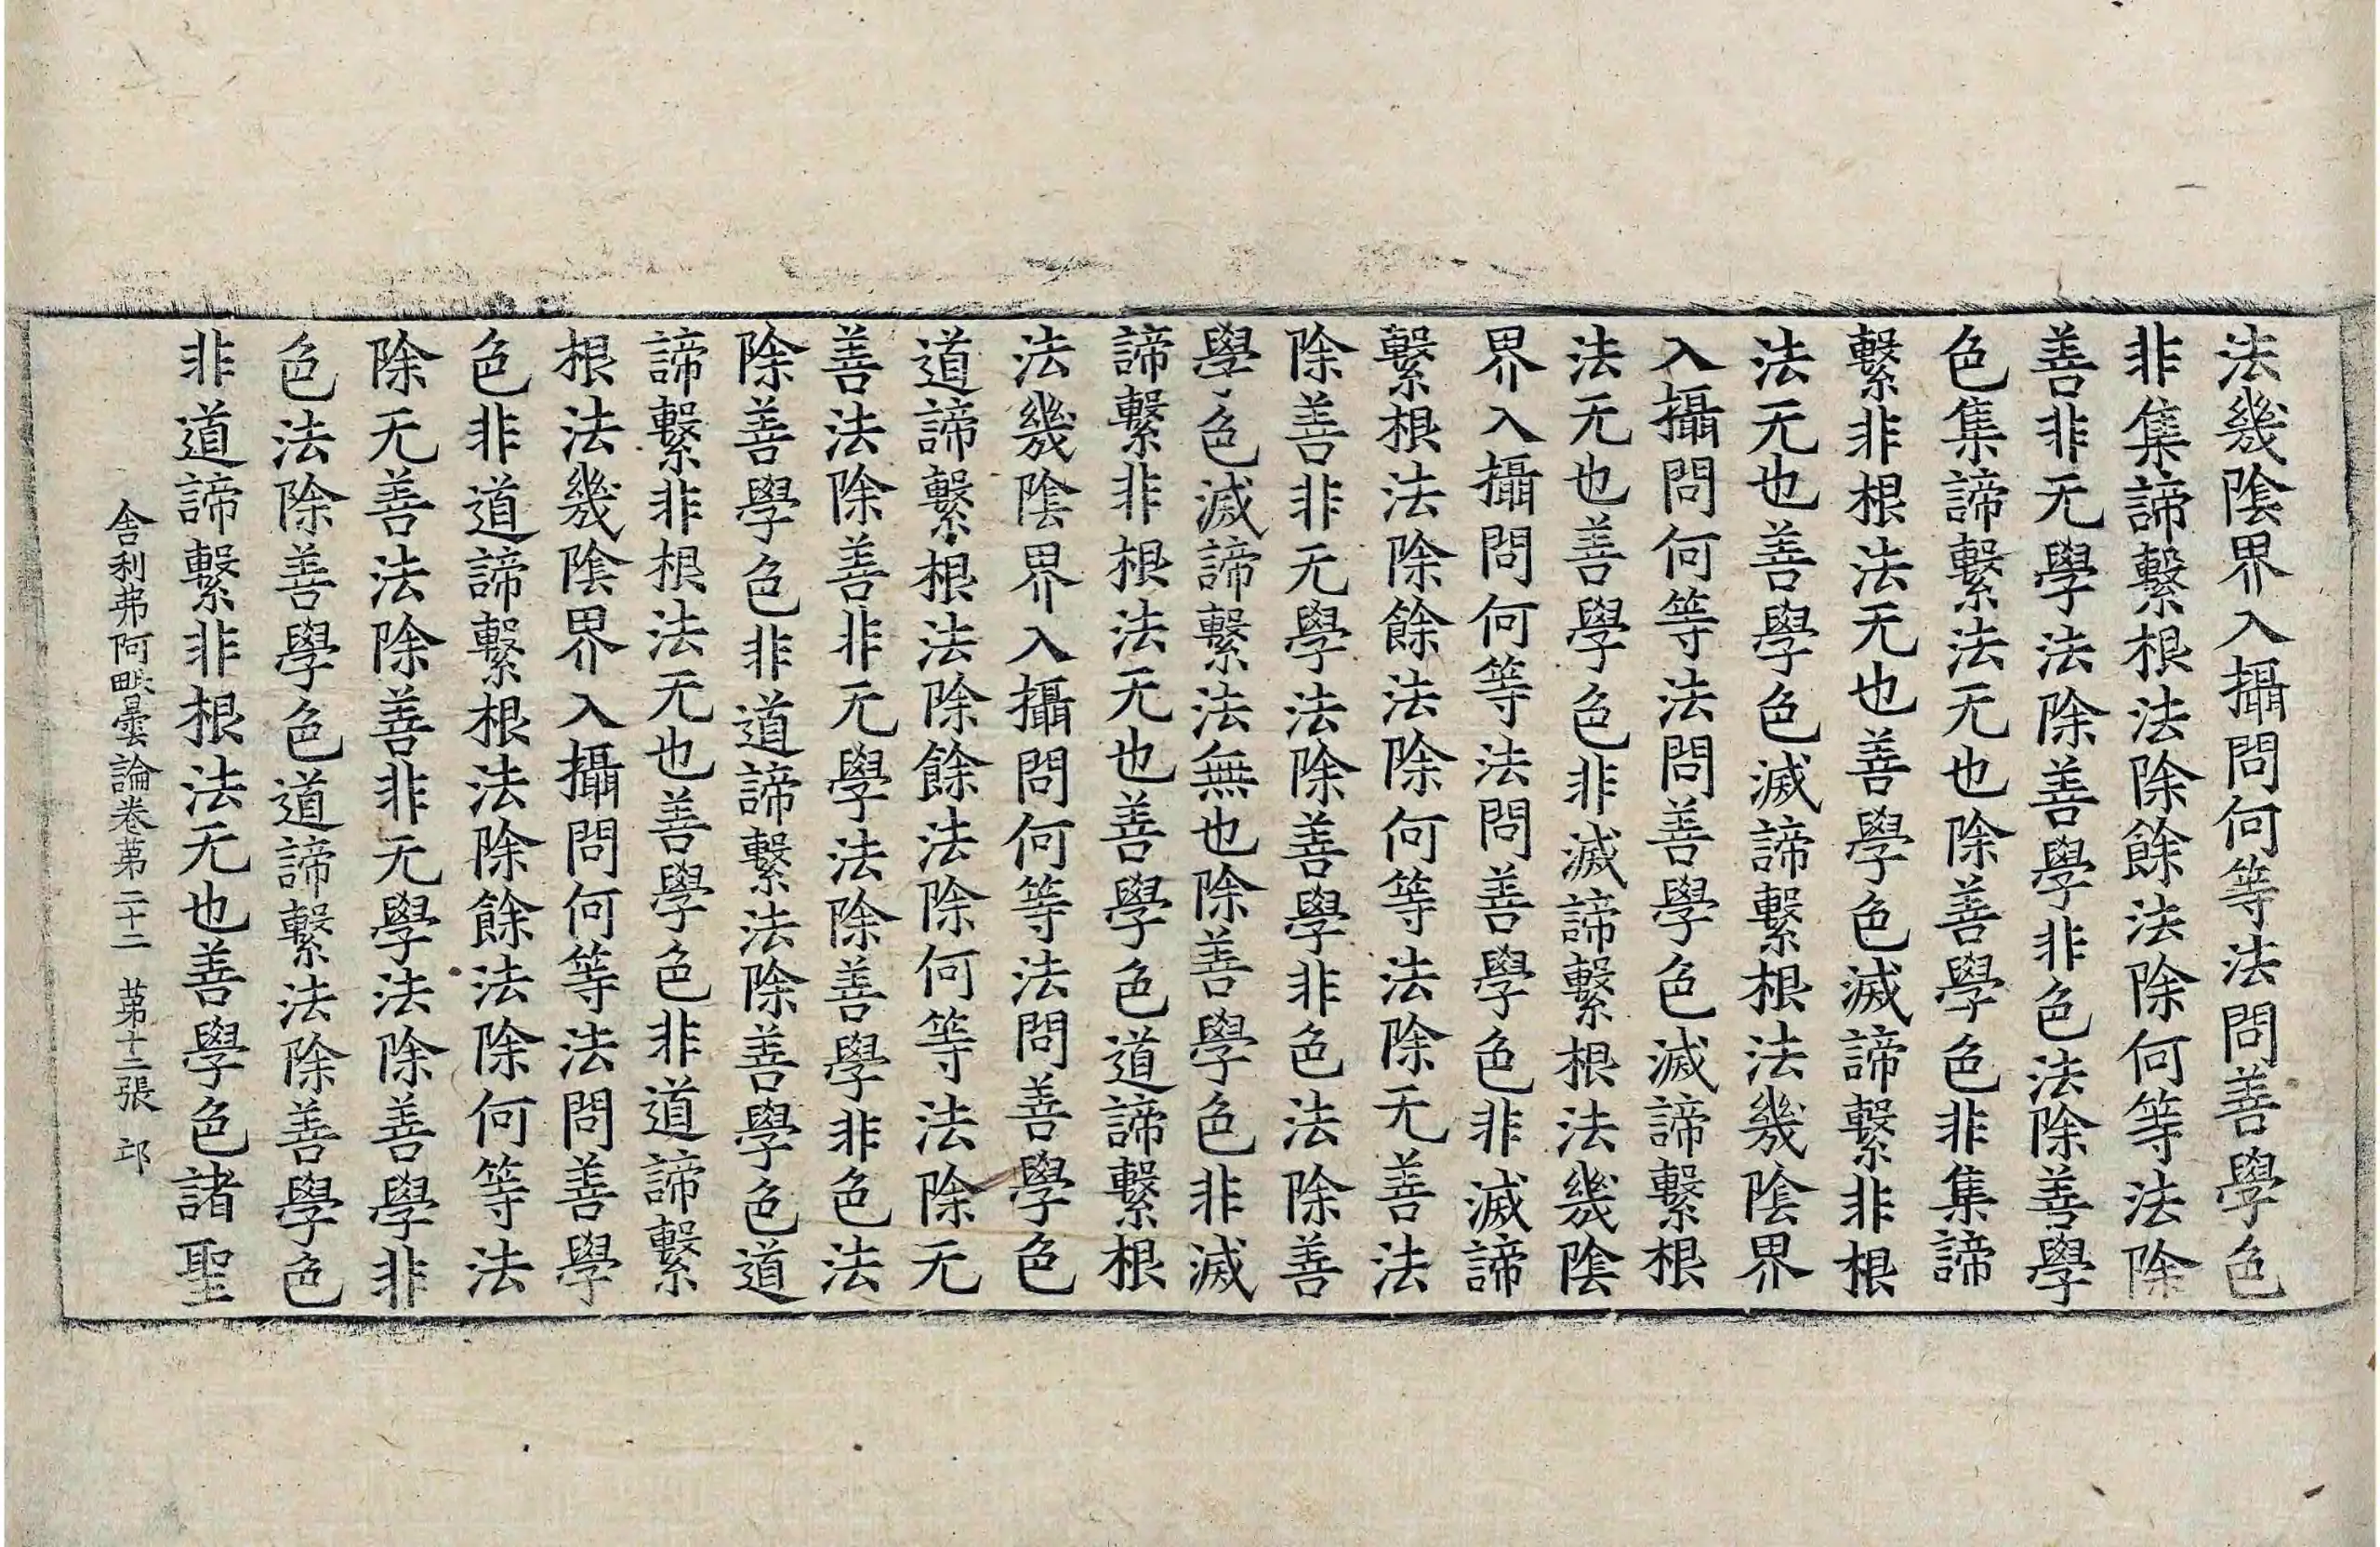 法幾陰界入攝問何等法問善學色
非集諦繫根法除餘法除何等法除
善非无學法除善學非色法除善學
色集諦繫法无也除善學色非集諦
繫非根法无也善學色滅諦繫非根
法无也善學色滅諦繫根法幾陰界
入攝問何等法問善學色滅諦繫根
法无也善學色非滅諦繫根法幾陰
界入攝問何等法問善學色非滅諦
繫根法除餘法除何等法除无善法
除善非无學法除善學非色法除善
學色滅諦繫法無也除善學色非滅
諦繫非根法无也善學色道諦繫根
法幾陰界入攝問何等法問善學色
道諦繫根法除餘法除何等法除无
善法除善非无學法除善學非色法
除善學色非道諦繫法除善學色道
諦繫非根法无也善學色非道諦繫
根法幾陰界入攝問何等法問善學
色非道諦繫根法除餘法除何等法
除无善法除善非无學法除善學非
色法除善學色道諦繫法除善學色
非道諦繫非根法无也善學色諸聖
舍利弗阿毗曇論卷第二十二 第十二張 邱